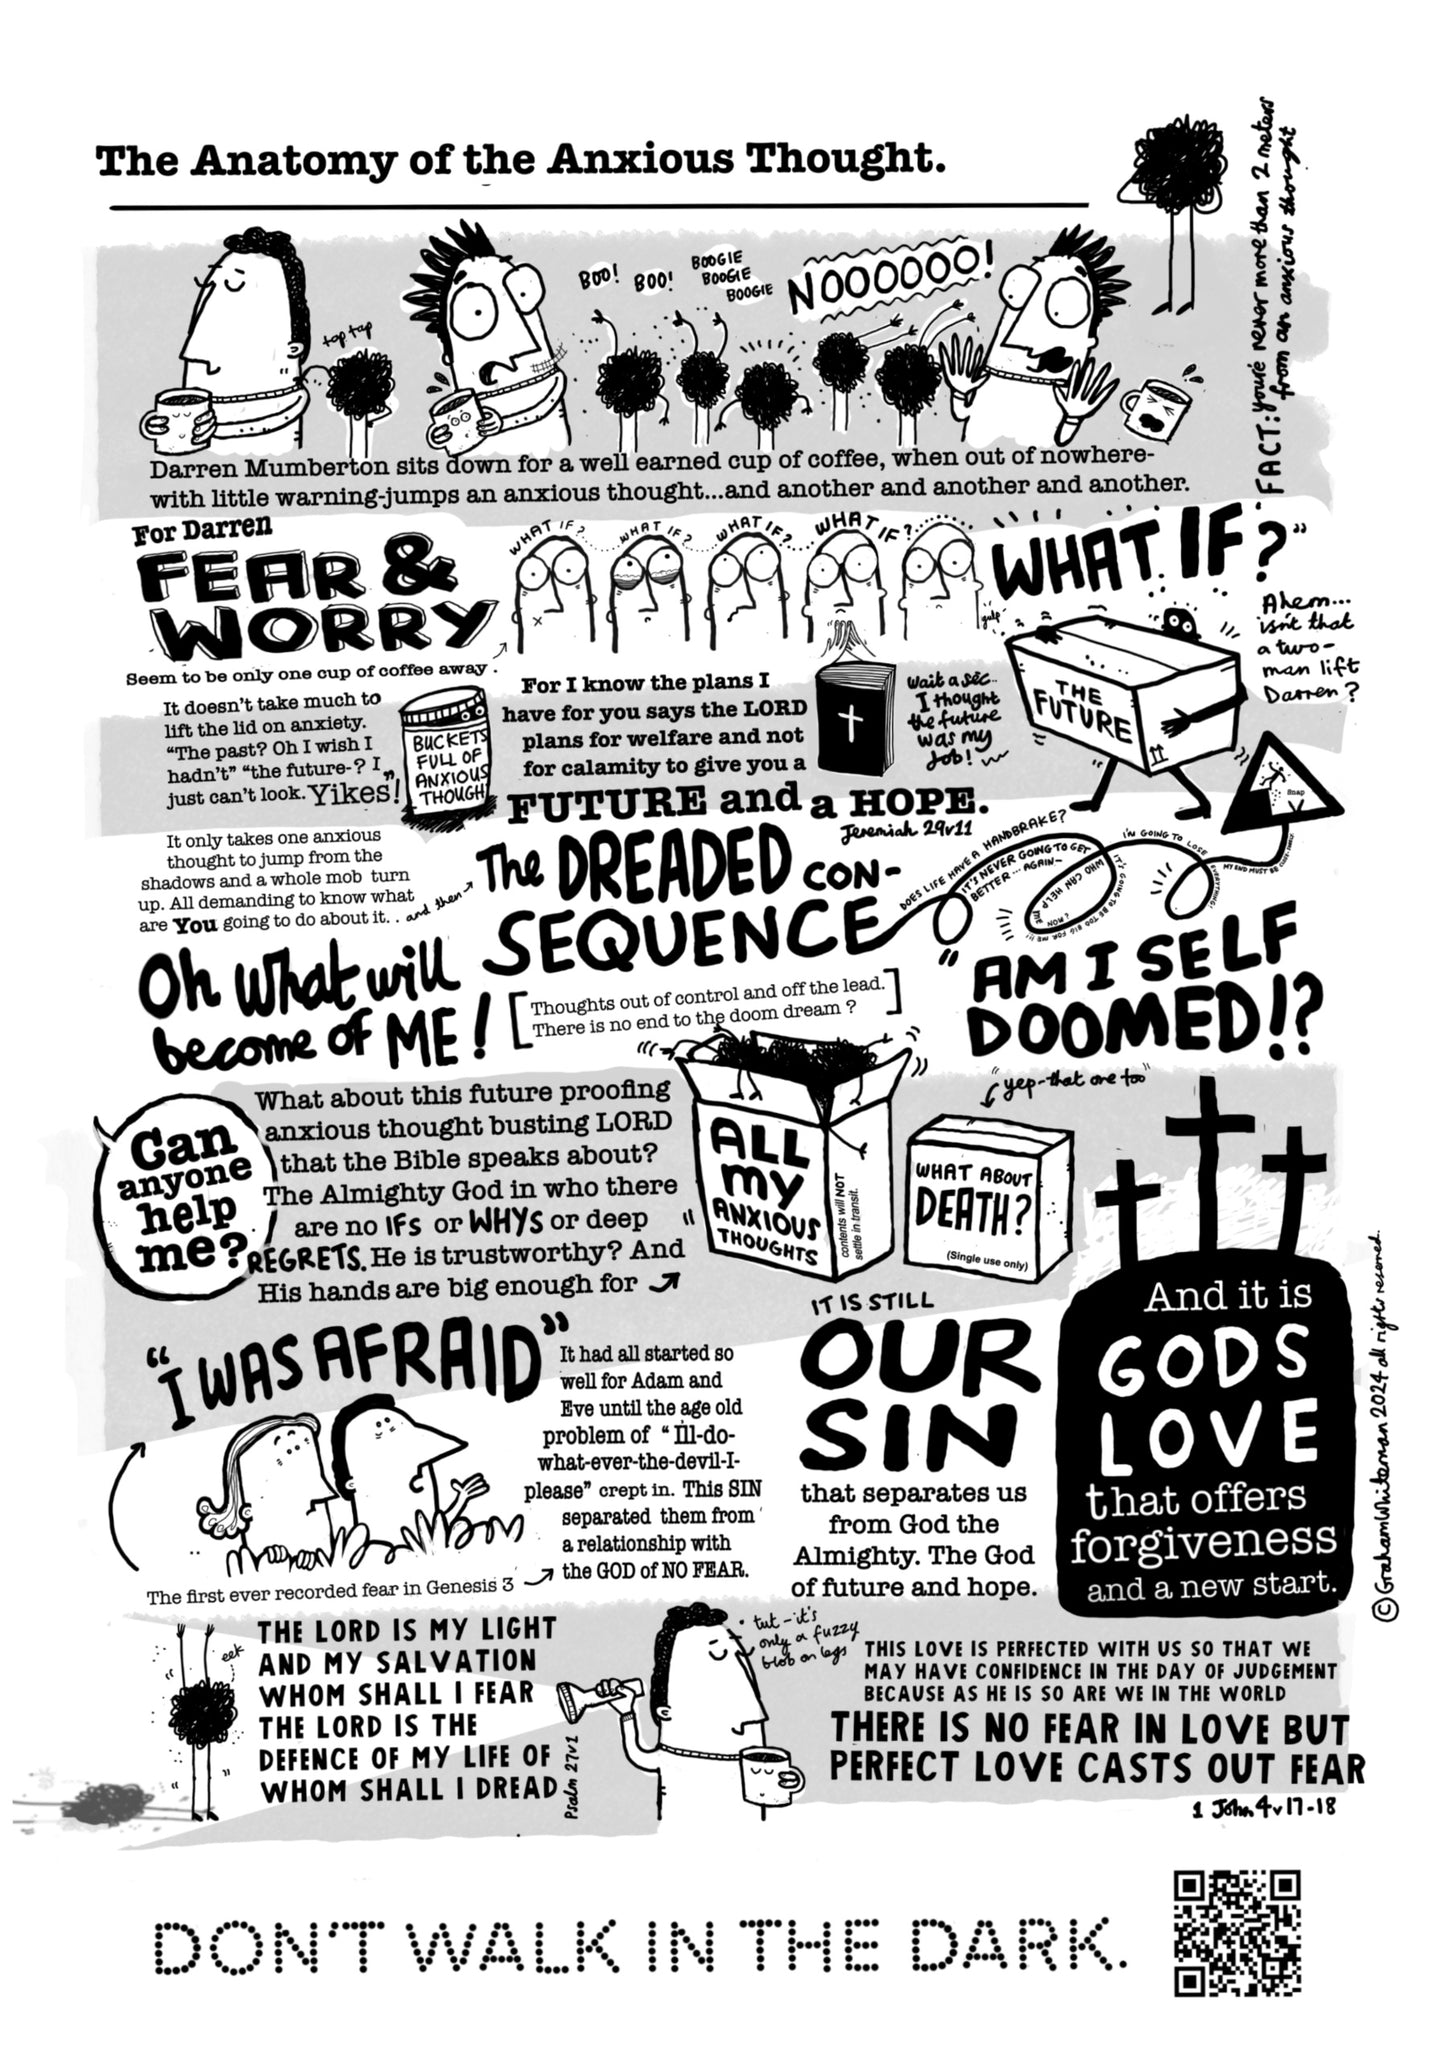 The Anatomy of the Anxious Thought.
FACT: you're never more than 2 meters
from an anxious thought
tap tap
BOO!
BOO!
BOOGIE
BOOGIE
BOOGIE
NOOOOOO!
Darren Mumberton sits down for a well earned cup of coffee, when out of nowhere-
with little warning-jumps an anxious thought...and another and another and another.
For Darren
FEAR &
WORRY
Seem to be only one cup of coffee away.
WHAT IF?
WHAT IF?
WHAT IF?
WHAT IF?
gulp
WHAT IF?"
Ahem...
isn't that
a two-
man lift
Darren?
THE
FUTURE
It doesn't take much to
lift the lid on anxiety.
"The past? Oh I wish I
hadn't" "the future-? I
just can't look. Yikes!"
BUCKETS
FULL OF
ANXIOUS
THOUGH
For I know the plans I
have for you says the LORD
plans for welfare and not
for calamity to give you a
FUTURE and a HOPE.
Jeremiah 29v11
Wait a sec..
I thought
the future
was my
Job!
Snap
It only takes one anxious
thought to jump from the
shadows and a whole mob turn
up. All demanding to know what
are You going to do about it.. and then
The DREADED CON-
SEQUENCE
DOES LIFE HAVE A HANDBRAKE?
IT'S NEVER GOING TO GET
BETTER... AGAIN-
WHO CAN HELP ME
NOW?
IT'S GOING TO BE TOO BIG FOR ME!!!
I'M GOING TO LOSE
EVERYTHING!
MY END MUST BE
Oh what will
become of ME!
[Thoughts out of control and off the lead.
There is no end to the doom dream ?]
"AM I SELF
DOOMED!?
"yep-that one too"
Can
anyone
help
me?
What about this future proofing
anxious thought busting LORD
that the Bible speaks about?
The Almighty God in who there
are no IFs or WHYS or deep
REGRETS. He is trustworthy? And
His hands are big enough for
ALL
my
ANXIOUS
THOUGHTS
contents will NOT
settle in transit.
WHAT ABOUT
DEATH?
(Single use only)
"I WAS AFRAID"
It had all started so
well for Adam and
Eve until the age old
problem of "Ill-do-
what-ever-the-devil-I-
please" crept in. This SIN
separated them from
a relationship with
the GOD of NO FEAR.
The first ever recorded fear in Genesis 3
IT IS STILL
OUR
SIN
that separates us
from God the
Almighty. The God
of future and hope.
And it is
GODS
LOVE
that offers
forgiveness
and a new start.
©GrahamWhiteman 2024 all rights reserved.
eek
THE LORD IS MY LIGHT
AND MY SALVATION
WHOM SHALL I FEAR
THE LORD IS THE
DEFENCE OF MY LIFE OF
WHOM SHALL I DREAD
Psalm 27v1
tut-it's
only a fuzzy
blob on legs
THIS LOVE IS PERFECTED WITH US SO THAT WE
MAY HAVE CONFIDENCE IN THE DAY OF JUDGEMENT
BECAUSE AS HE IS SO ARE WE IN THE WORLD
THERE IS NO FEAR IN LOVE BUT
PERFECT LOVE CASTS OUT FEAR
1 John 4v17-18
DON'T WALK IN THE DARK.